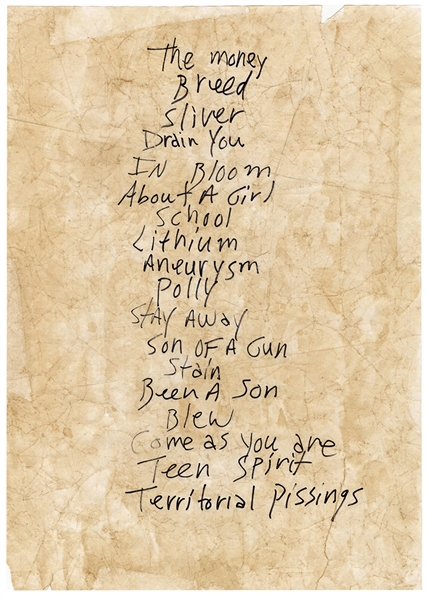 The money
Breed
Sliver
Drain You
IN Bloom
About A Girl
School
Lithium
Aneurysm
Polly
Stay Away
Son OF A Gun
Stain
Been A Son
Blew
Come as you are
Teen Spirit
Territorial Pissings